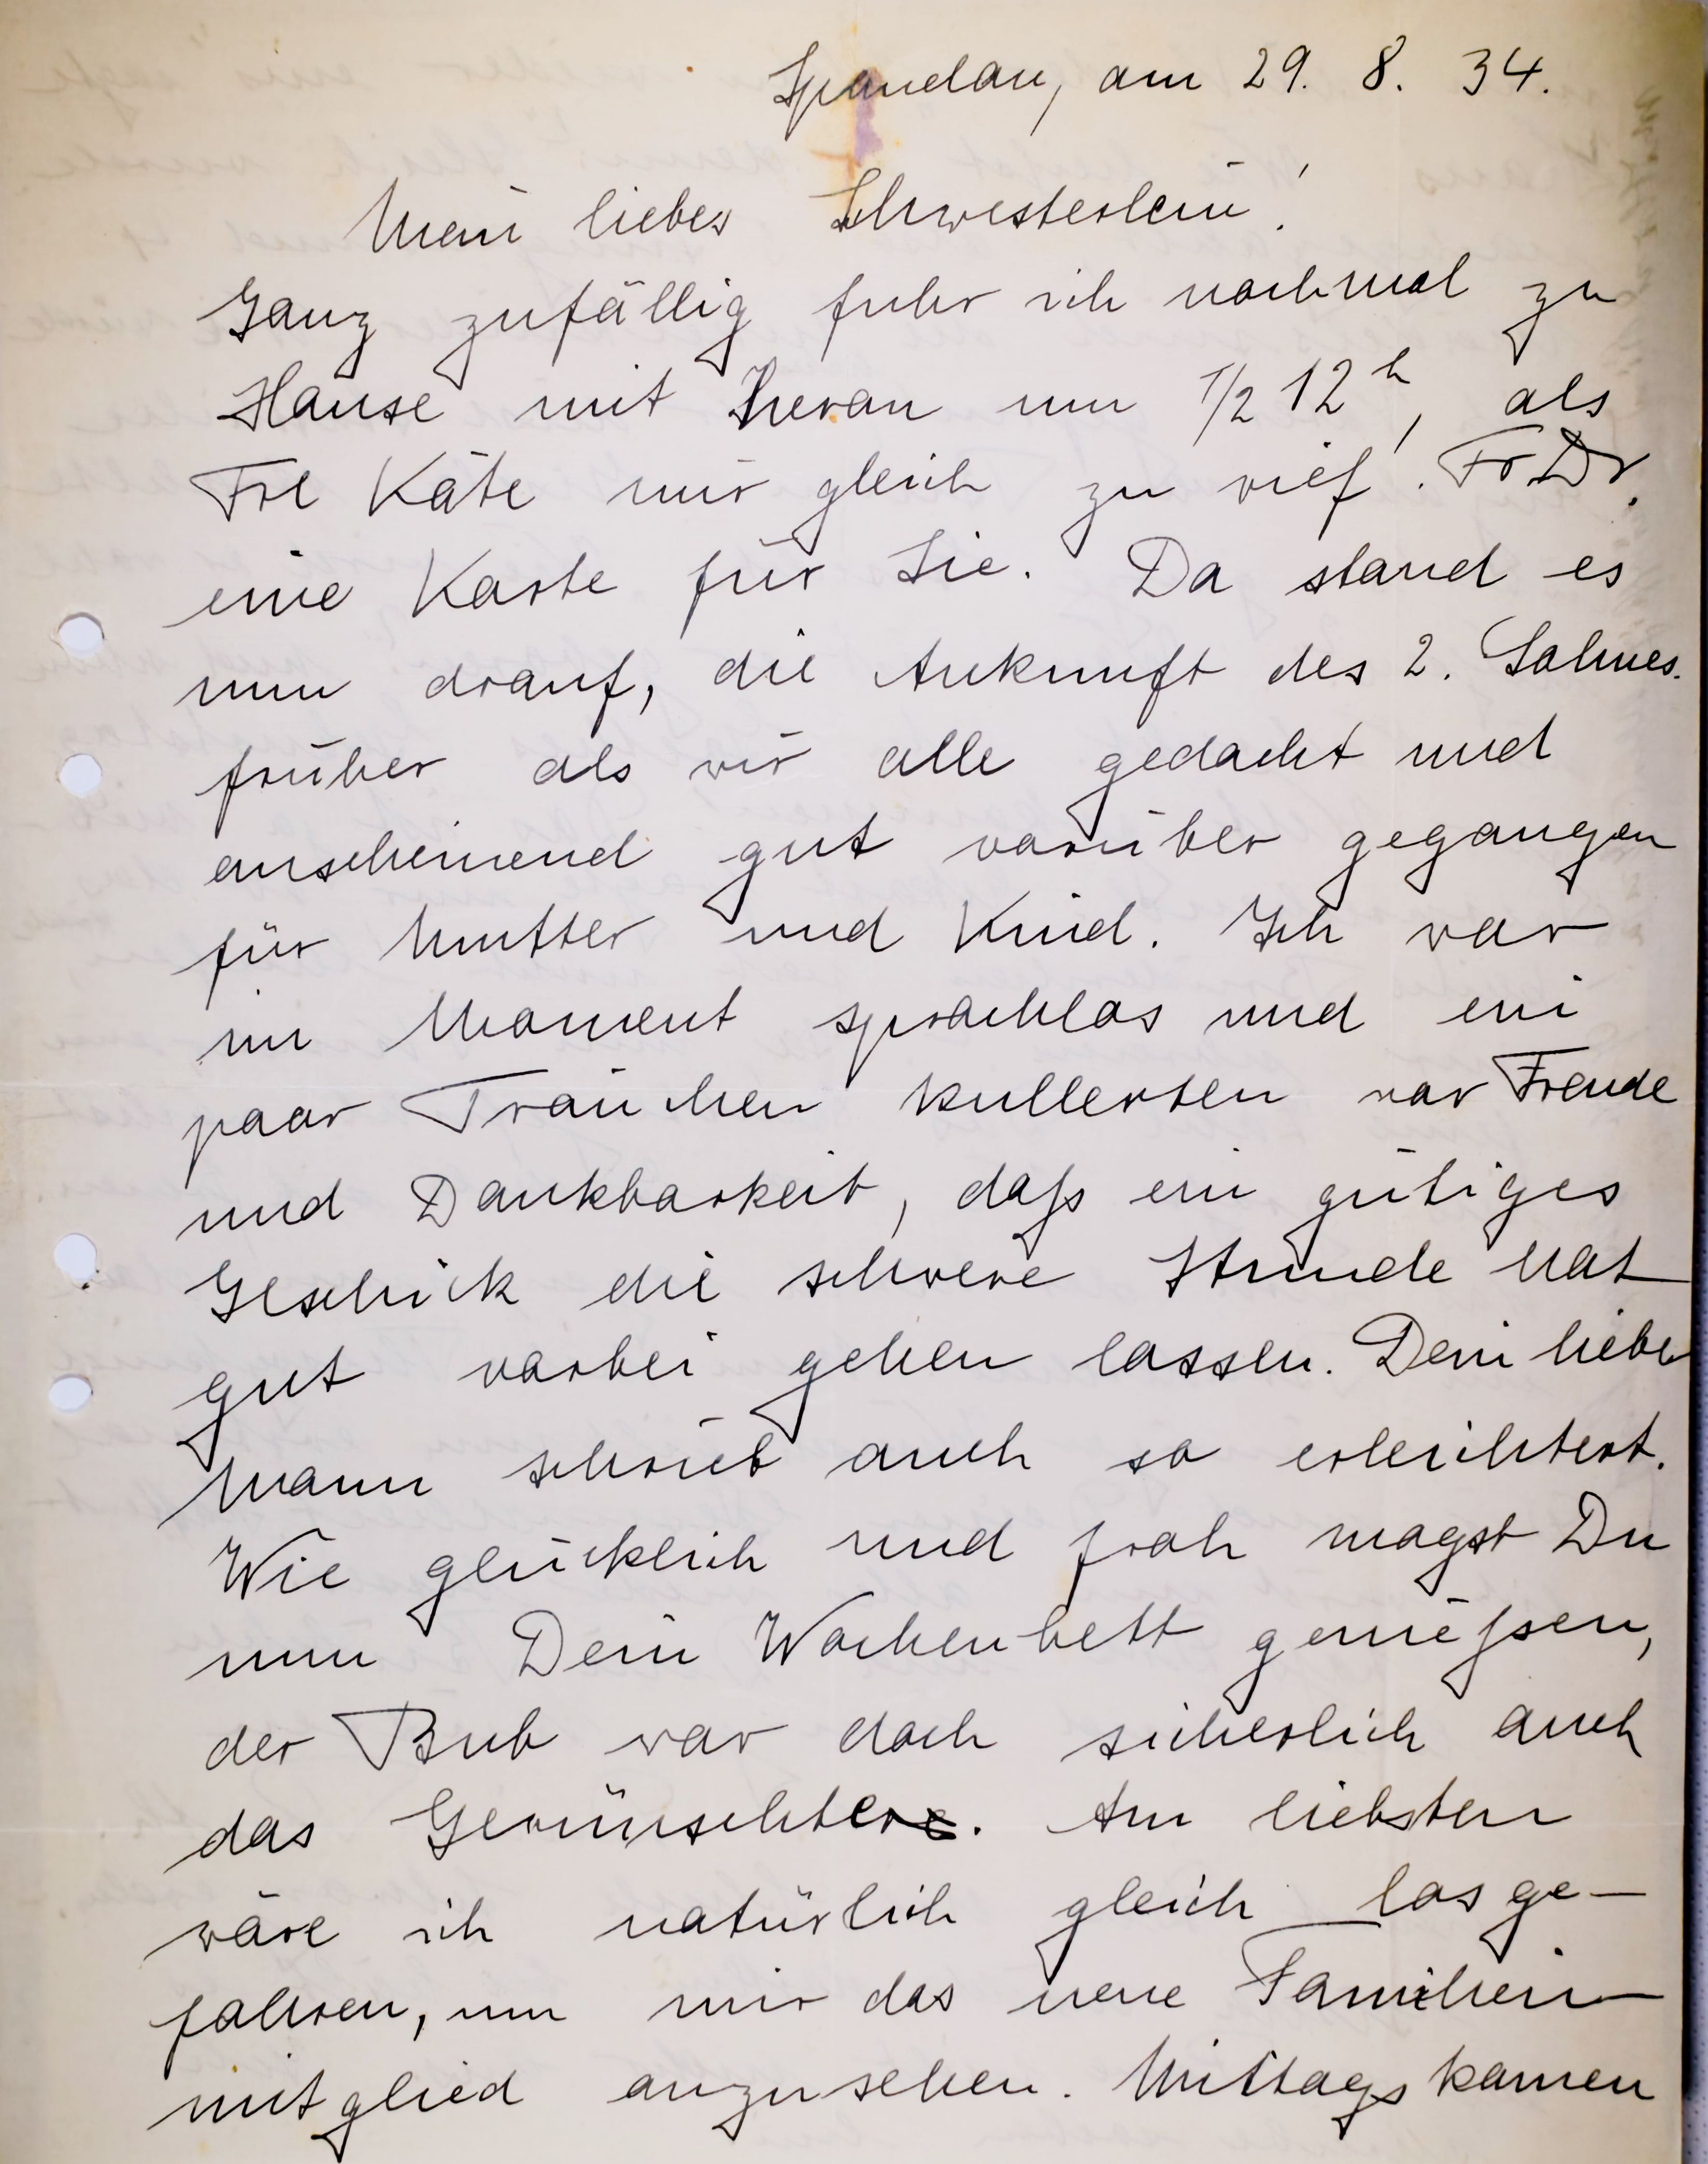 Spandau, am 29. 8. 34.
Mein liebes Schwesterlein!
Ganz zufällig fuhr ich nochmal zu
Hause mit heran um 1/2 12 h, als
Frl Käte mir gleich zu rief! Fr Dr.
eine Karte für Sie. Da stand es
nun drauf, die Ankunft des 2. Sohnes.
früher als wir alle gedacht und
anscheinend gut vorüber gegangen
für Mutter und Kind. Ich war
im Moment sprachlos und ein
paar Tränchen kullerten vor Freude
und Dankbarkeit, daß ein gütiges
Geschick die schwere Stunde hat
gut vorbei gehen lassen. Dein lieber
Mann schrieb auch so erleichtert.
Wie glücklich und froh magst Du
nun Dein Wochenbett genießen,
der Bub war doch sicherlich auch
das Gewünschtere. Am liebsten
wäre ich natürlich gleich losge-
fahren, um mir das neue Familien-
mitglied anzusehen. Mittags kamen